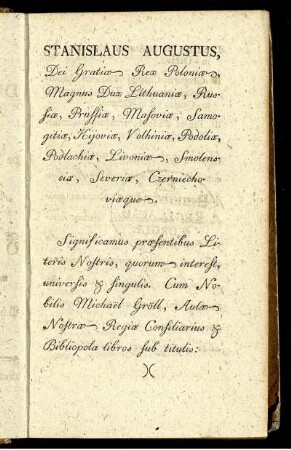 STANISLAUS AUGUSTUS,
Dei Gratiæ Rex Poloniæ,
Magnus Dux Lithuaniæ, Rus-
siæ, Prussiæ, Masoviæ, Samo-
gitiæ, Kijoviæ, Volhiniæ, Podoliæ,
Podlachiæ, Livoniæ, Smolens-
ciæ, Severiæ, Czerniecho-
viæque.
Significamus præsentibus Li-
teris Nostris, quorum interest,
universis & singulis. Cum No-
bilis Michaël Gröll, Aulæ
Nostræ Regiæ Consiliarius &
Bibliopola libros sub titulis:
)(